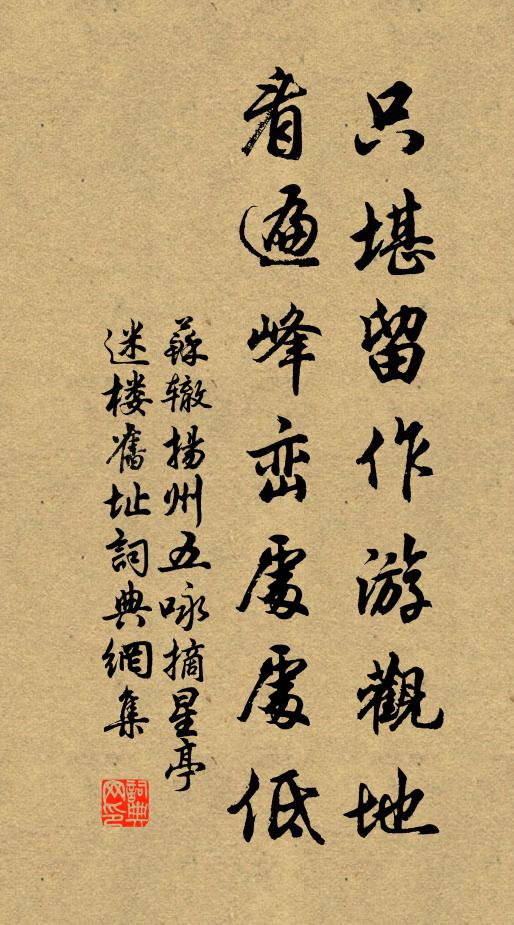 只堪留作游觀地
看遍峰峦處處低
蘇辙揚州五咏摘星亭
迷楼舊址詞典網集
詞典网印